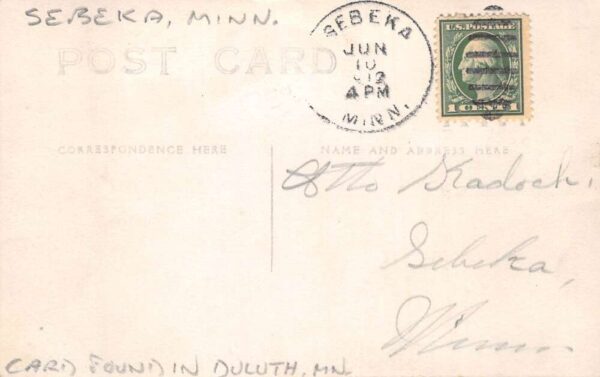 SEBEKA, MINN.
POST CARD
SEBEKA
JUN
10
4 PM
MINN.
U.S. POSTAGE
1 CENT 1
CORRESPONDENCE HERE
NAME AND ADDRESS HERE
Otto
Sebeka,
Minn.
CARD FOUND IN DULUTH, MN.